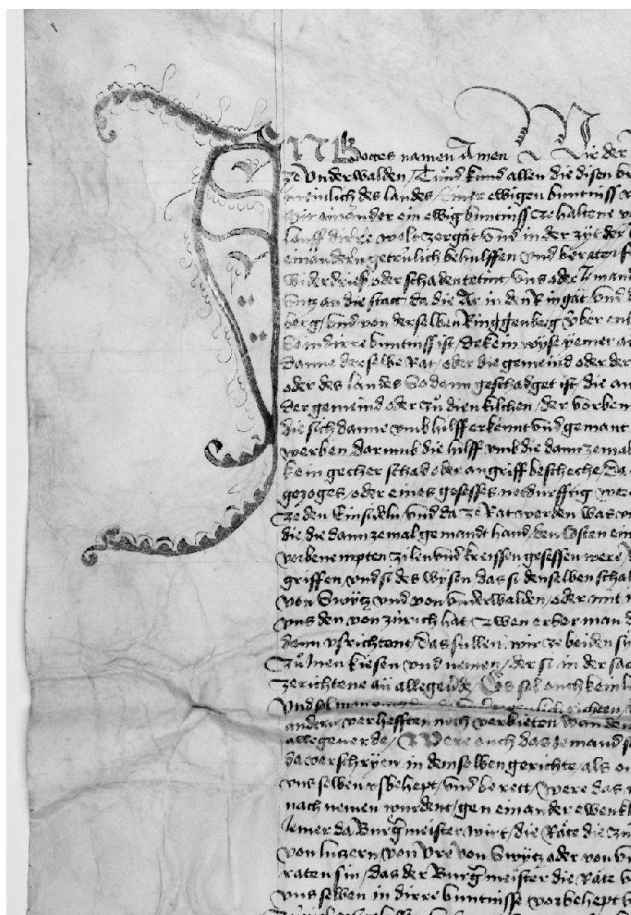 IN Gottes namen Amen Wir der
ze Underwalden / Tund kund allen die disen br
meinlich des landes / einer ewigen buntniss
mit ainander ein ewig buntniss ze haltene
louff dirre welt zergat und in der zyt der
einandern getrülich behulffen und beraten
widerdriess oder schaden tetint / uns oder Jeman
untz an die statt da die Ar in den Rin gat / und
berg / und von derselben Ringgenberg über ent
kein dirre buntniss ist / dekein wyse yemer
danne derselbe Rat / oder die gemeind oder der
oder des landes So dann geschadget ist / die
der gemeind oder zů dien kilchen / der vorben
die sich danne umb hilff erkennt und gemant
werben / dar umb die hilff und die dann zemal
kein gecher schad oder angriff bescheche / da
gezoges / oder eines gesesses notdurfftig wer
ze den Einsideln / und da ze Rat werden was
die die dann zemal gemandt hand / den Costen ein
vorbenempten zilen und kreissen gesessen were /
griffen / und si des wysen das si denselben scha
von Swytz und von Underwalden / oder mit
uns den von zürich hat zwen erber man d
dann ufrichtent / das sullen wir ze beiden si
zů Inen kiesen und nemen / der si in der sac
ze richtene an alle geuerde / Es sol ouch kein l
und sol man richten /
andern verhefften noch verbieten wan den
alle geuerde / Were ouch das jemand
da verschryen / in demselben gerichte als
uns selben usbehept / und berett / Were das
nach nemen wurdent / gen einander ewenkl
Jemer da Burgmeister wirt / die Räte die zů
von lutzern / von Ure von Swytz ader von
raten sin / das der Burgmeister die Räte
uns selben in dirre buntnisse vorbehept